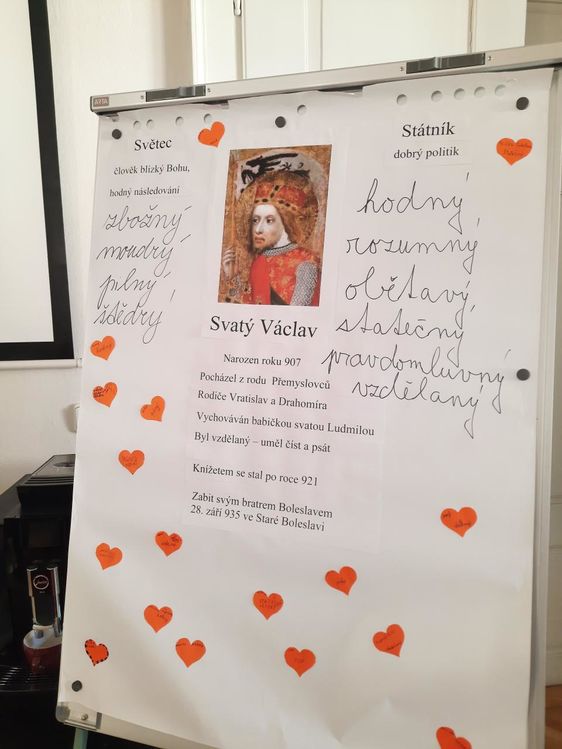 AVTA
Světec
člověk blízký Bohu,
hodný následování
zbožný
moudrý
pilný
štědrý
Svatý Václav
Narozen roku 907
Pocházel z rodu Přemyslovců
Rodiče Vratislav a Drahomíra
Vychováván babičkou svatou Ludmilou
Byl vzdělaný – uměl číst a psát
Knížetem se stal po roce 921
Zabit svým bratrem Boleslavem
28. září 935 ve Staré Boleslavi
Státník
dobrý politik
hodný,
rozumný,
obětavý,
statečný,
pravdomluvný,
vzdělaný
Jura